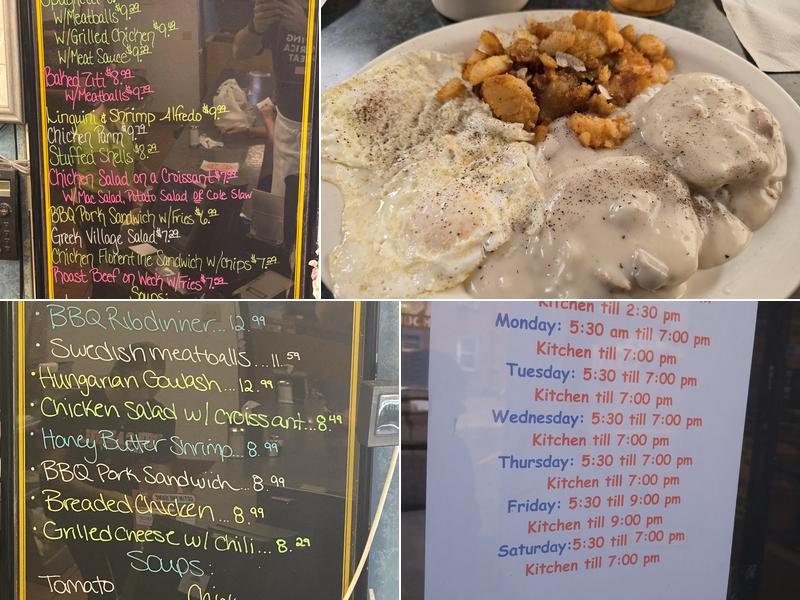 Spaghetti w/
W/Meatballs $9.29
W/Grilled Chicken $9.99
W/Meat Sauce $9.29
Baked Ziti $8.99
W/Meatballs $9.79
Linguini & Shrimp Alfredo $9.99
Chicken Parm $9.79
Stuffed Shells $8.29
Chicken Salad on a Croissant $7.99
W/Mac Salad, Potato Salad or Cole Slaw
BBQ Pork Sandwich w/Fries $6.99
Greek Village Salad $7.29
Chicken Florentine Sandwich w/chips $7.99
Roast Beef on Weck w/Fries $7.59
Soups:
• BBQ Rib dinner... 12.99
• Swedish meatballs....11.59
• Hungarian Goulash...12.99
• Chicken Salad w/ croissant...8.49
• Honey Butter Shrimp... 8.99
• BBQ Pork Sandwich... 8.99
• Breaded Chicken... 8.99
• Grilled Cheese w/ Chili... 8.29
Soups:
Tomato
Kitchen till 2:30 pm
Monday: 5:30 am till 7:00 pm
Kitchen till 7:00 pm
Tuesday: 5:30 till 7:00 pm
Kitchen till 7:00 pm
Wednesday: 5:30 till 7:00 pm
Kitchen till 7:00 pm
Thursday: 5:30 till 7:00 pm
Kitchen till 7:00 pm
Friday: 5:30 till 9:00 pm
Kitchen till 9:00 pm
Saturday:5:30 till 7:00 pm
Kitchen till 7:00 pm